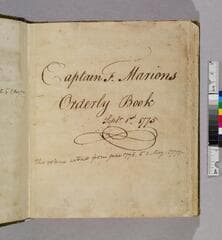 Captain F. Marions
Orderly Book
Sept. 1st 1775
This volume extends from June 1775 to May